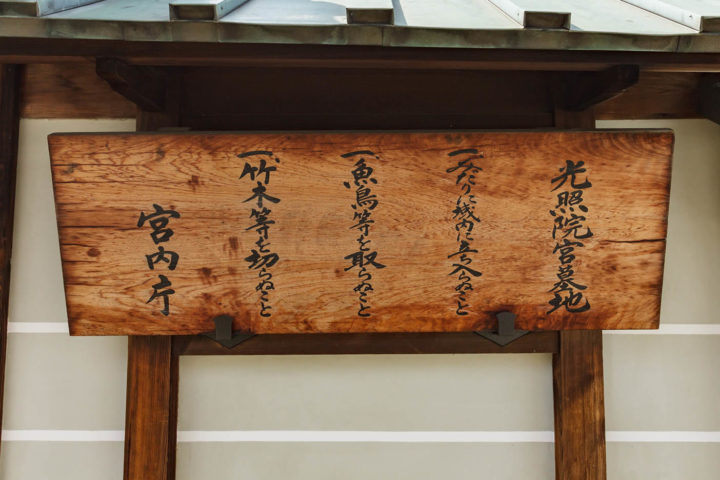 光照院宮墓地
一、みだりに域内に立ち入らぬこと
一、魚鳥等を取らぬこと
一、竹木等を切らぬこと
宮内庁